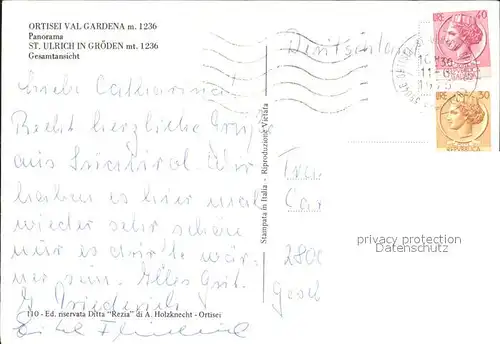 ORTISEI VAL GARDENA m. 1236
Panorama
ST. ULRICH IN GRÖDEN mt. 1236
Gesamtansicht
Deutschland
LIRE 40
LIRE 30
Liebe Catharina
Recht herzliche Grüße
aus Südtirol. Wir
haben es hier mal
wieder sehr schön
nur es dürfte wär-
mer sein. Alles Gute
Friederich
Stampata in Italia - Riproduzione Vietata
Frau
2800
privacy protection
Datenschutz
110 - Ed. riservata Ditta "Rezia" di A. Holzknecht - Ortisei